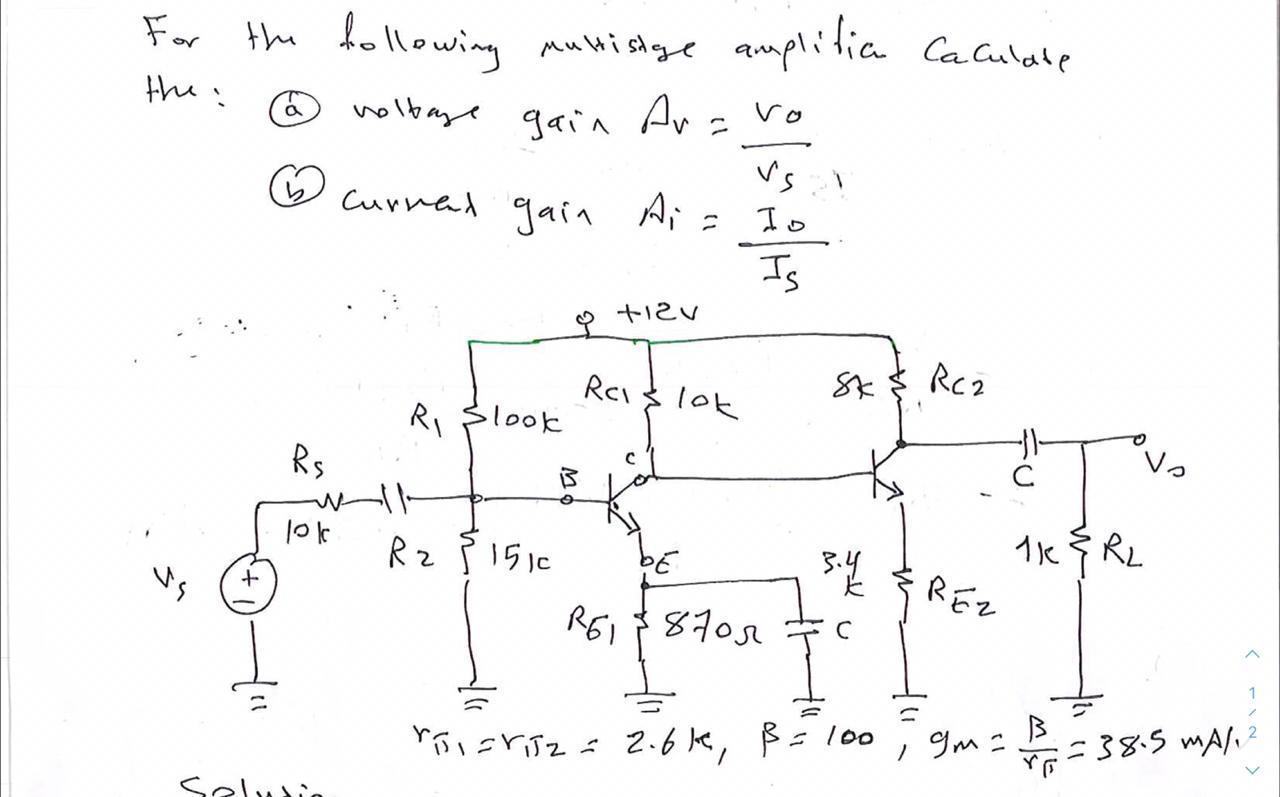 For the following multistge amplifier Caculate
the: ⓐ voltage gain Av = vo / vs ,
ⓑ current gain Ai = Io / Is
+12V
RC1 10k
8k RC2
R1 100k
Rs
10k
B
C
C
Vo
R2 15k
Vs
+
−
E
3.4 k
RE2
1k RL
RE1 870Ω
C
rπ1 = rπ2 = 2.6 k, β = 100 , gm = β / rπ = 38.5 mA/
1
/
2